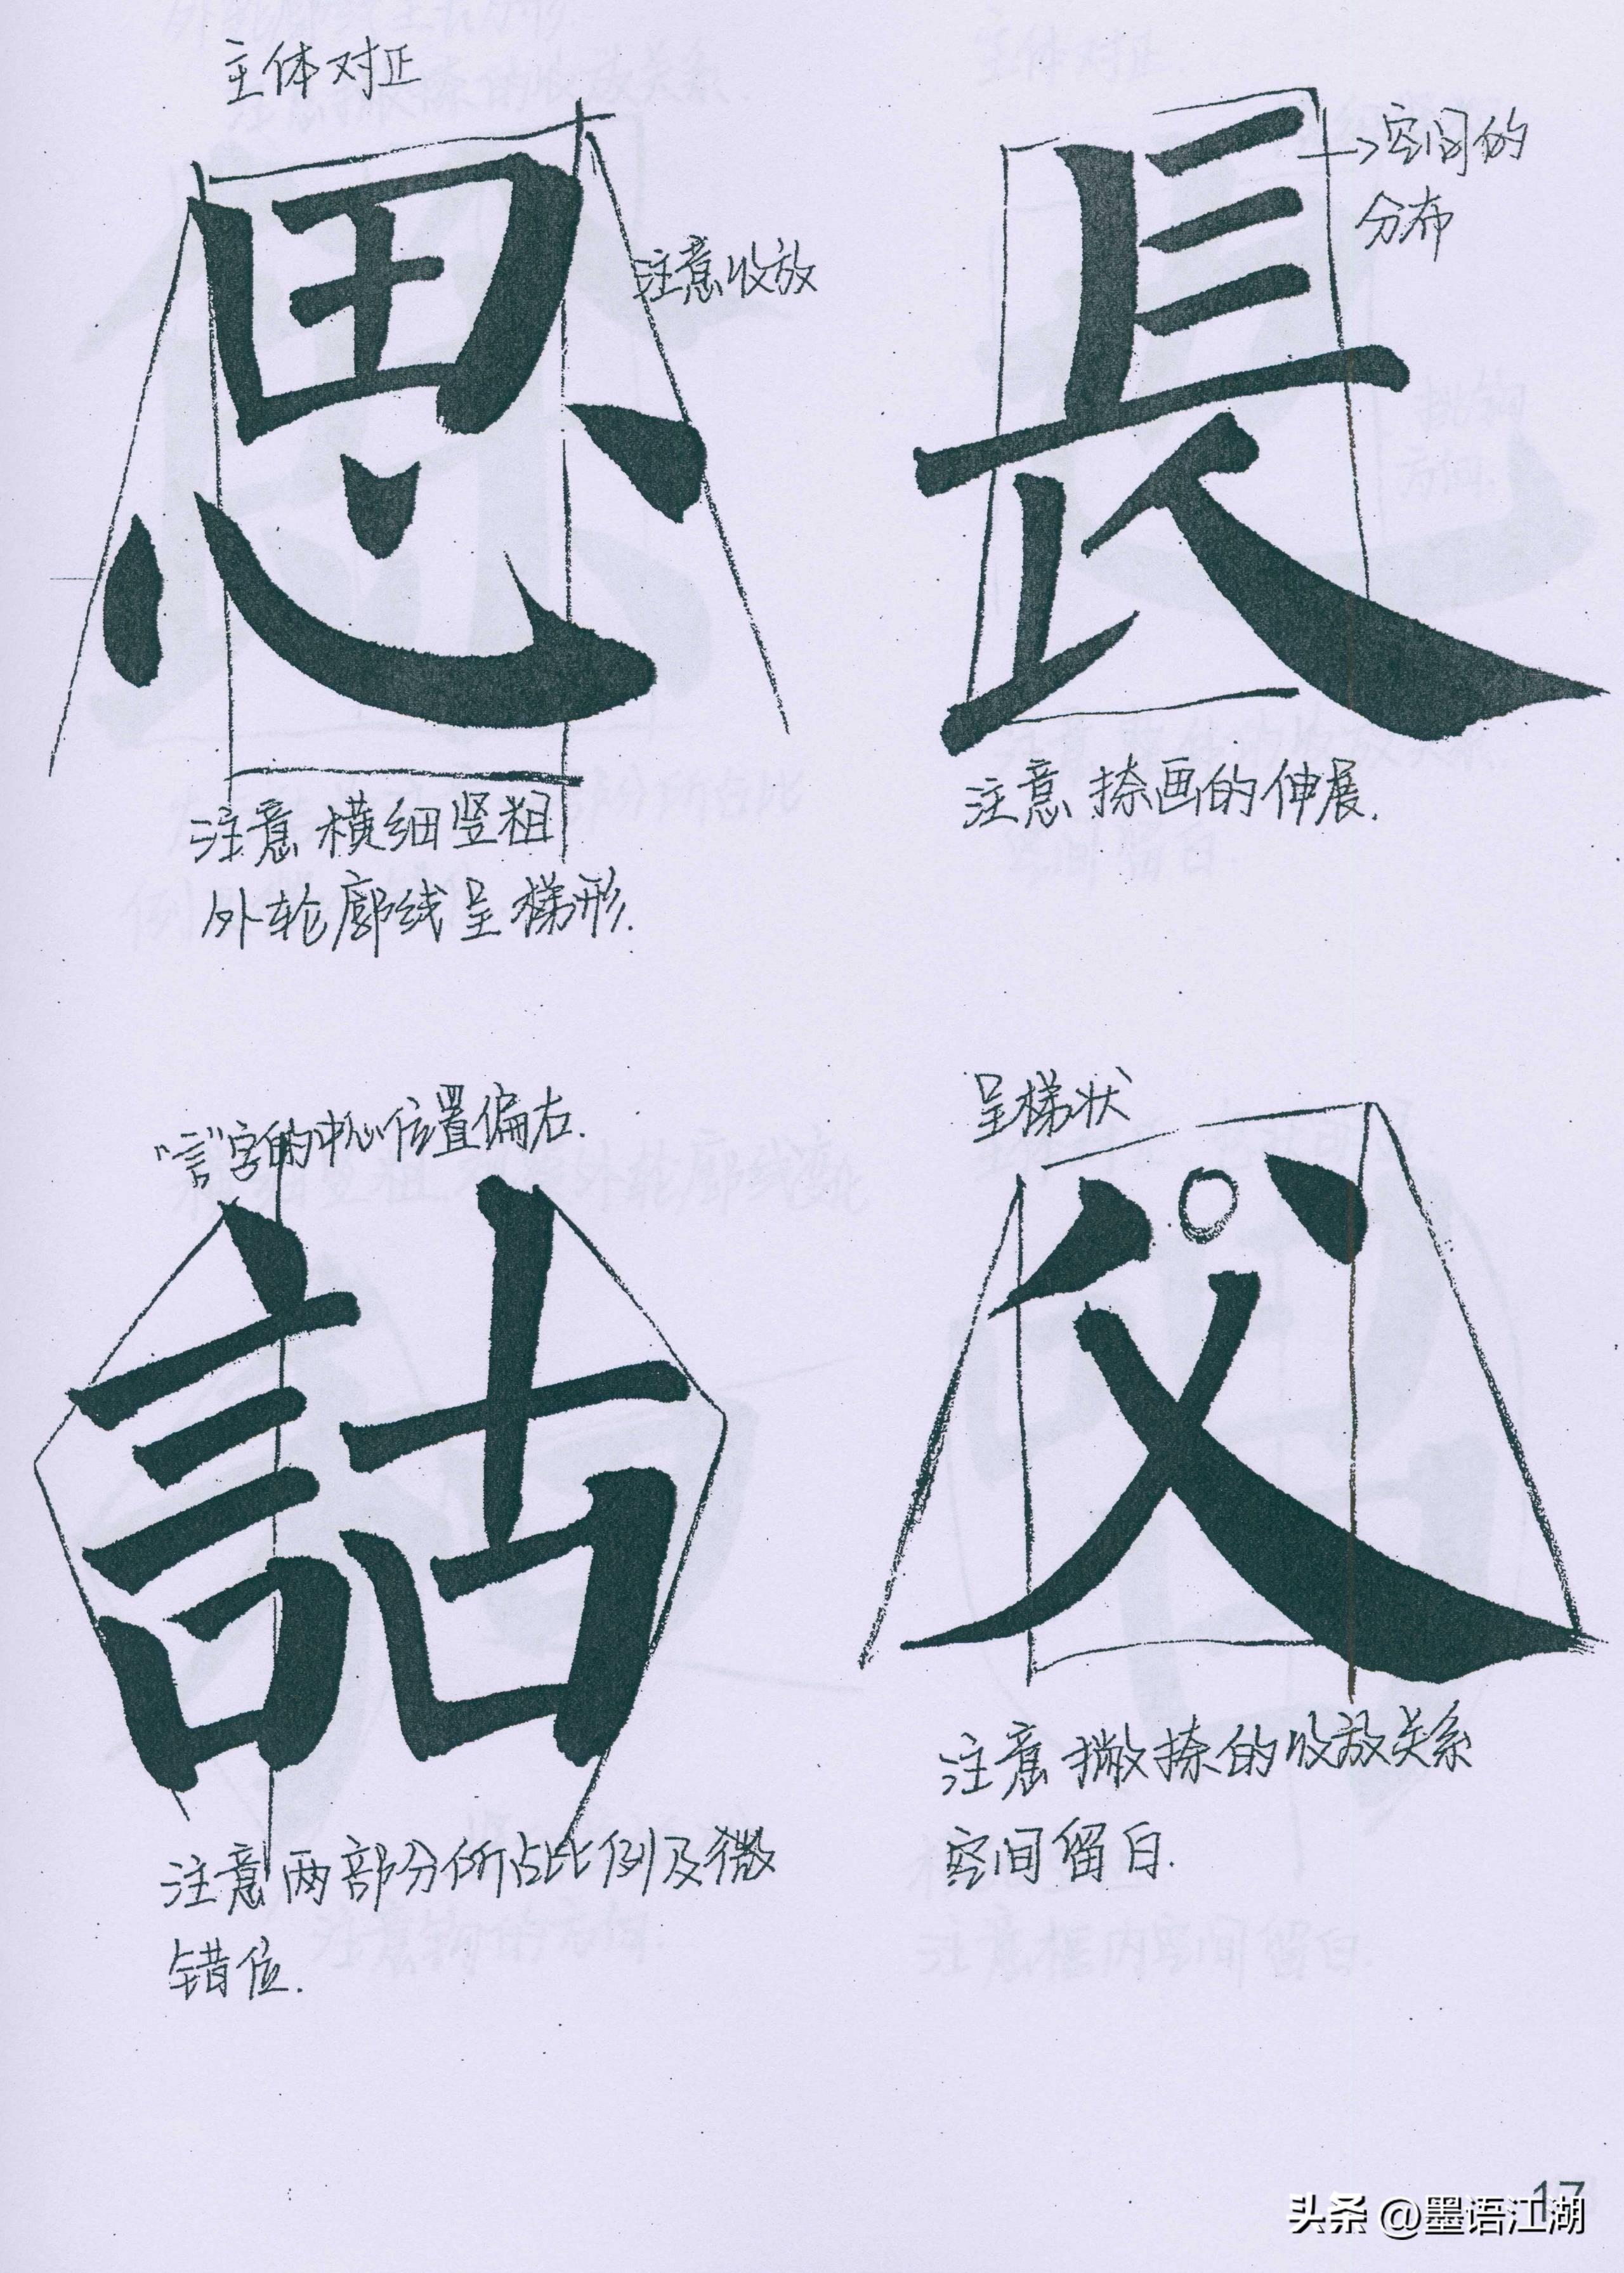 主体对正
思
注意收放
注意横细竖粗
外轮廓线呈梯形.
長
空间的
分布
注意捺画的伸展.
"言"字的中心位置偏右.
詁
注意两部分所占比例及微
错位.
呈梯状
父
注意撇捺的收放关系
空间留白.
17
头条 @墨语江湖